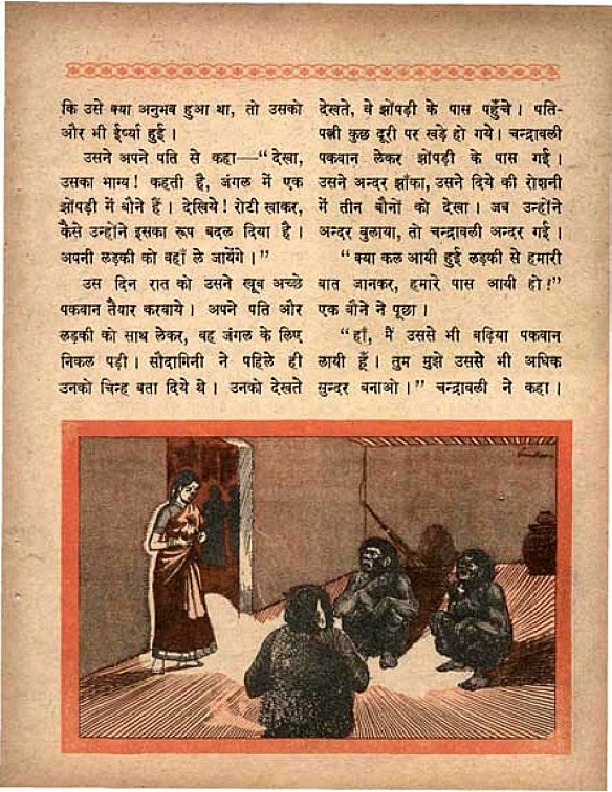 कि उसे क्या अनुभव हुआ था, तो उसको
और भी ईर्ष्या हुई ।
उसने अपने पति से कहा—“देखा,
उसका भाग्य! कहती है, जंगल में एक
झोंपड़ी में बौने हैं । देखिये! रोटी खाकर,
कैसे उन्होंने इसका रूप बदल दिया है ।
अपनी लड़की को वहाँ ले जायेंगे ।”
उस दिन रात को उसने खूब अच्छे
पकवान तैयार करवाये । अपने पति और
लड़की को साथ लेकर, वह जंगल के लिए
निकल पड़ी । सौदामिनी ने पहिले ही
उनको चिन्ह बता दिये थे । उनको देखते
देखते, वे झोंपड़ी के पास पहुँचे । पति-
पत्नी कुछ दूरी पर खड़े हो गये । चन्द्रावली
पकवान लेकर झोंपड़ी के पास गई ।
उसने अन्दर झाँका, उसने दिये की रोशनी
में तीन बौनों को देखा । जब उन्होंने
अन्दर बुलाया, तो चन्द्रावली अन्दर गई ।
“क्या कल आयी हुई लड़की से हमारी
बात जानकर, हमारे पास आयी हो!”
एक बौने ने पूछा ।
“हाँ, मैं उससे भी बढ़िया पकवान
लायी हूँ । तुम मुझे उससे भी अधिक
सुन्दर बनाओ ।” चन्द्रावली ने कहा ।